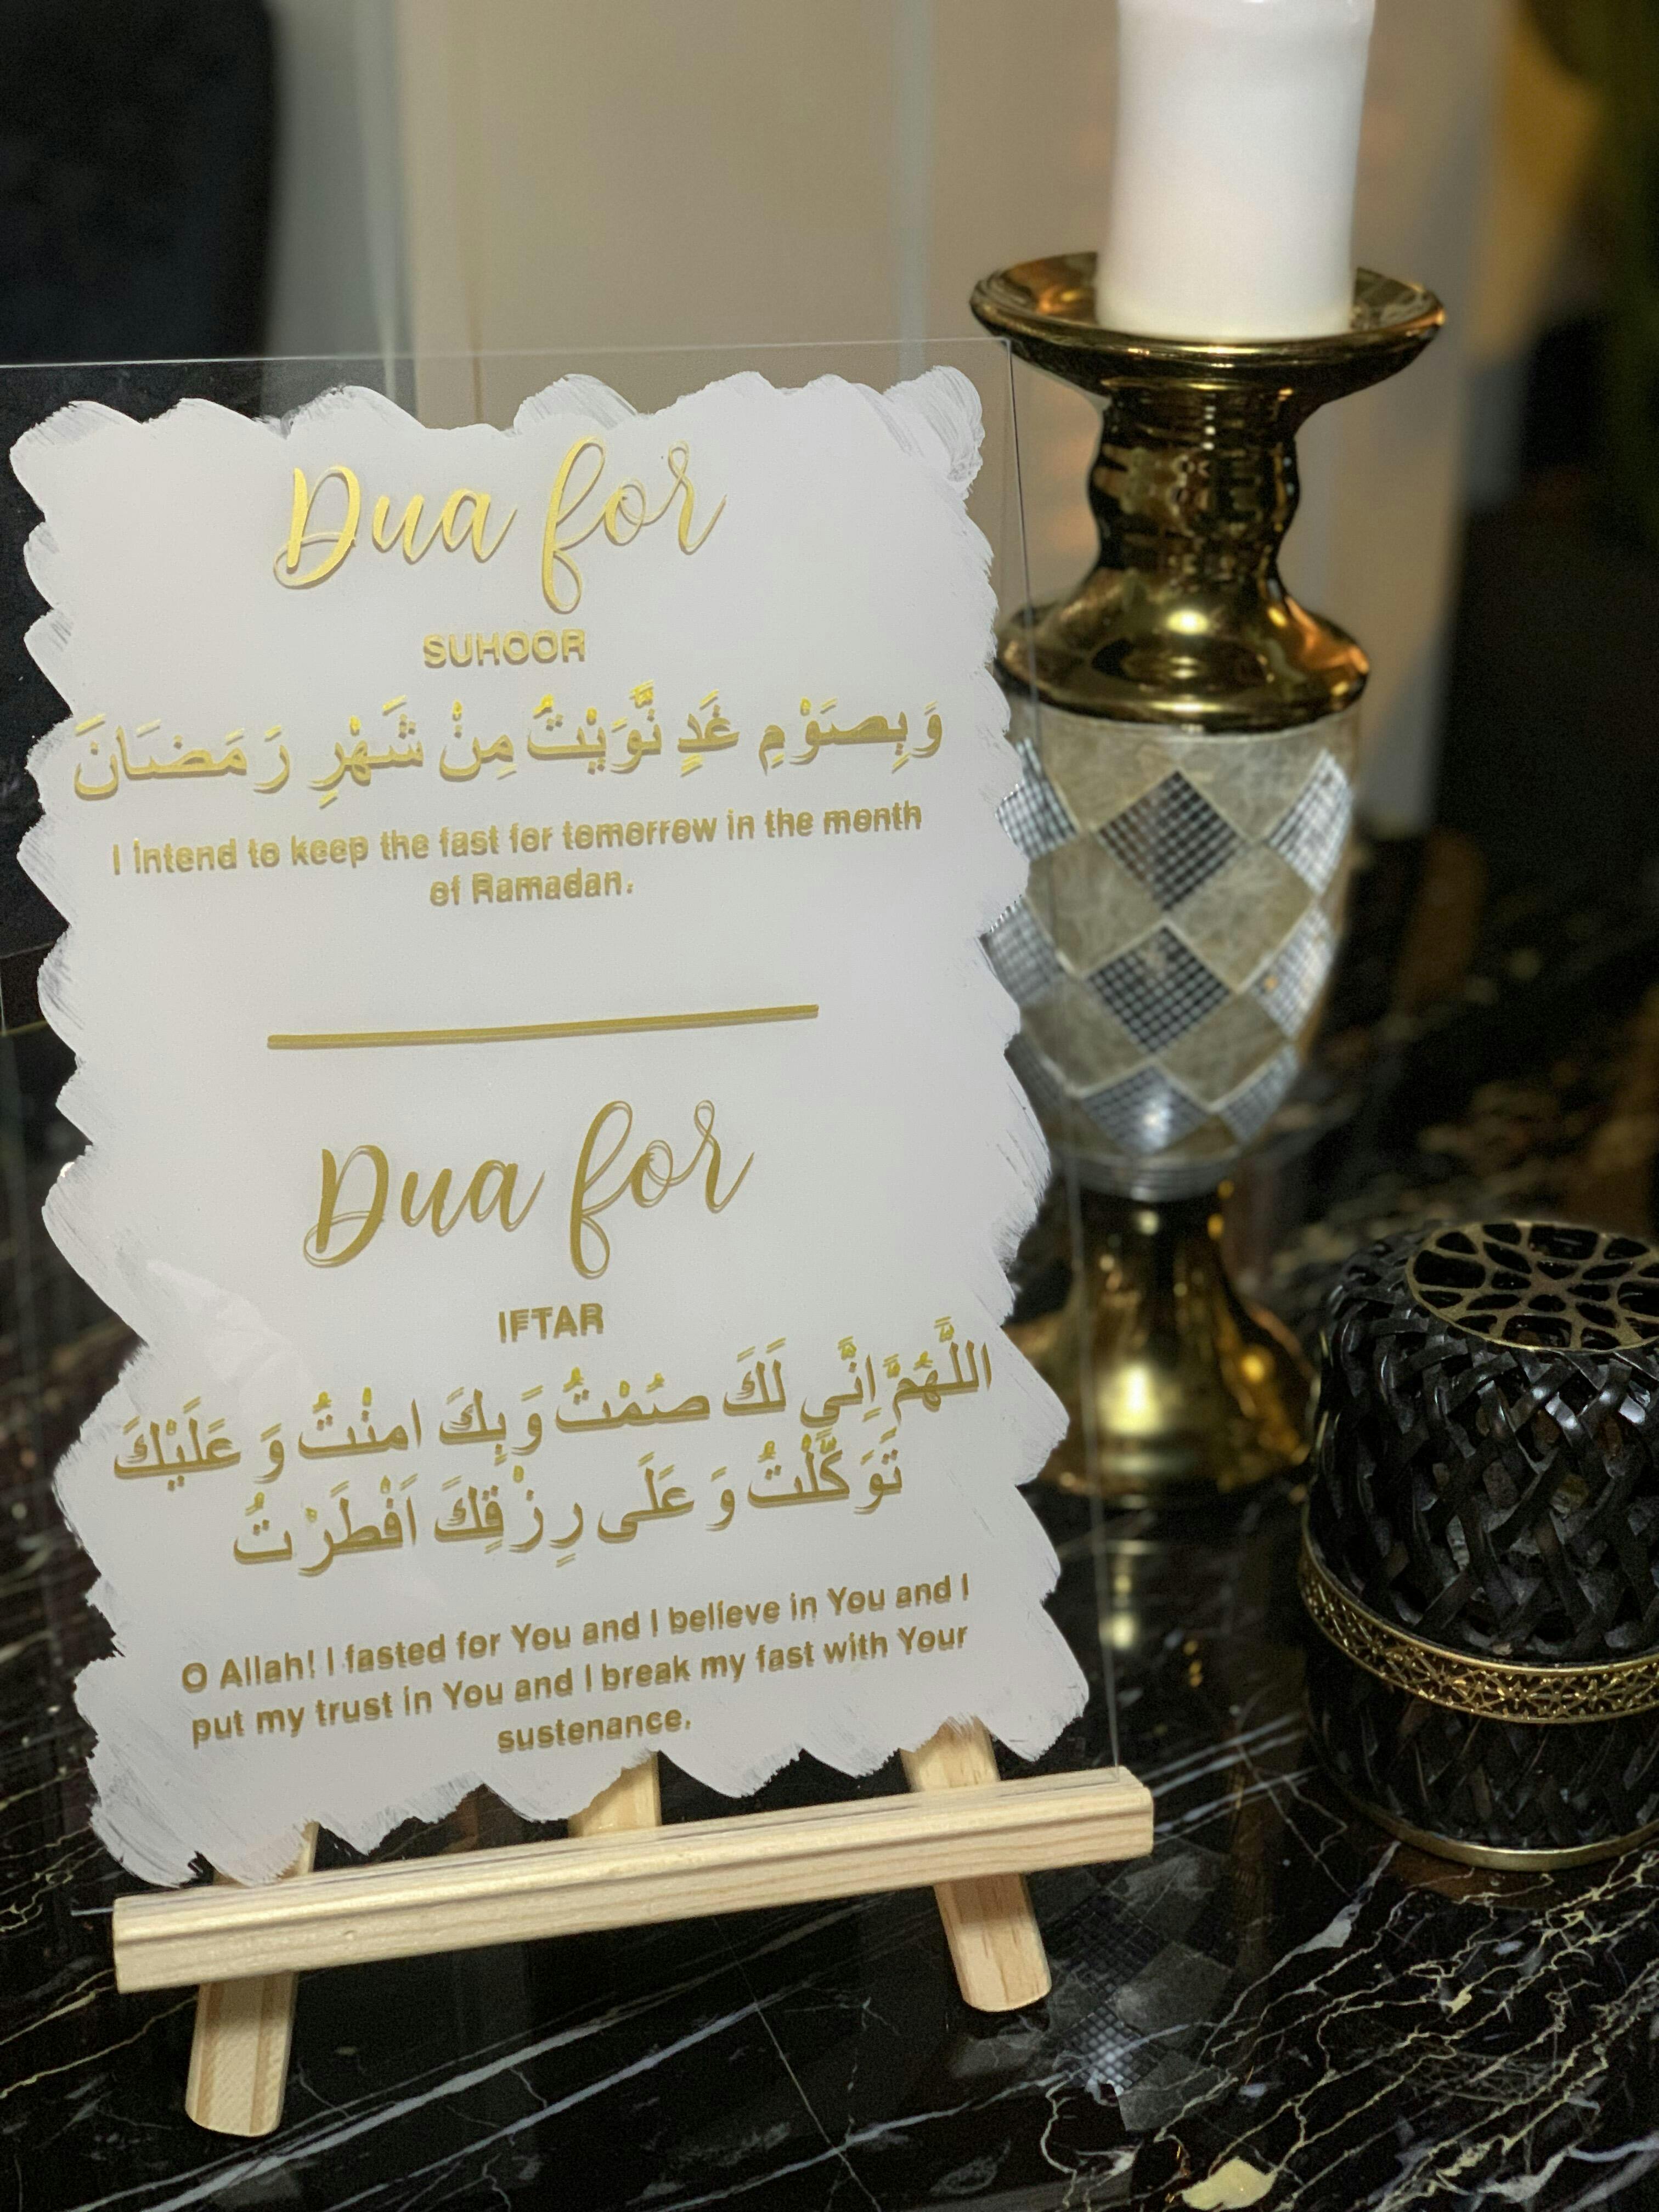 Dua for
SUHOOR
وَبِصَوْمِ غَدٍ نَّوَيْتُ مِنْ شَهْرِ رَمَضَانَ
I intend to keep the fast for tomorrow in the month
of Ramadan.
Dua for
IFTAR
اللَّهُمَّ اِنِّي لَكَ صُمْتُ وَبِكَ امنْتُ وَ عَلَيْكَ
تَوَكَّلْتُ وَ عَلَى رِزْقِكَ اَفْطَرْتُ
O Allah! I fasted for You and I believe in You and I
put my trust in You and I break my fast with Your
sustenance.